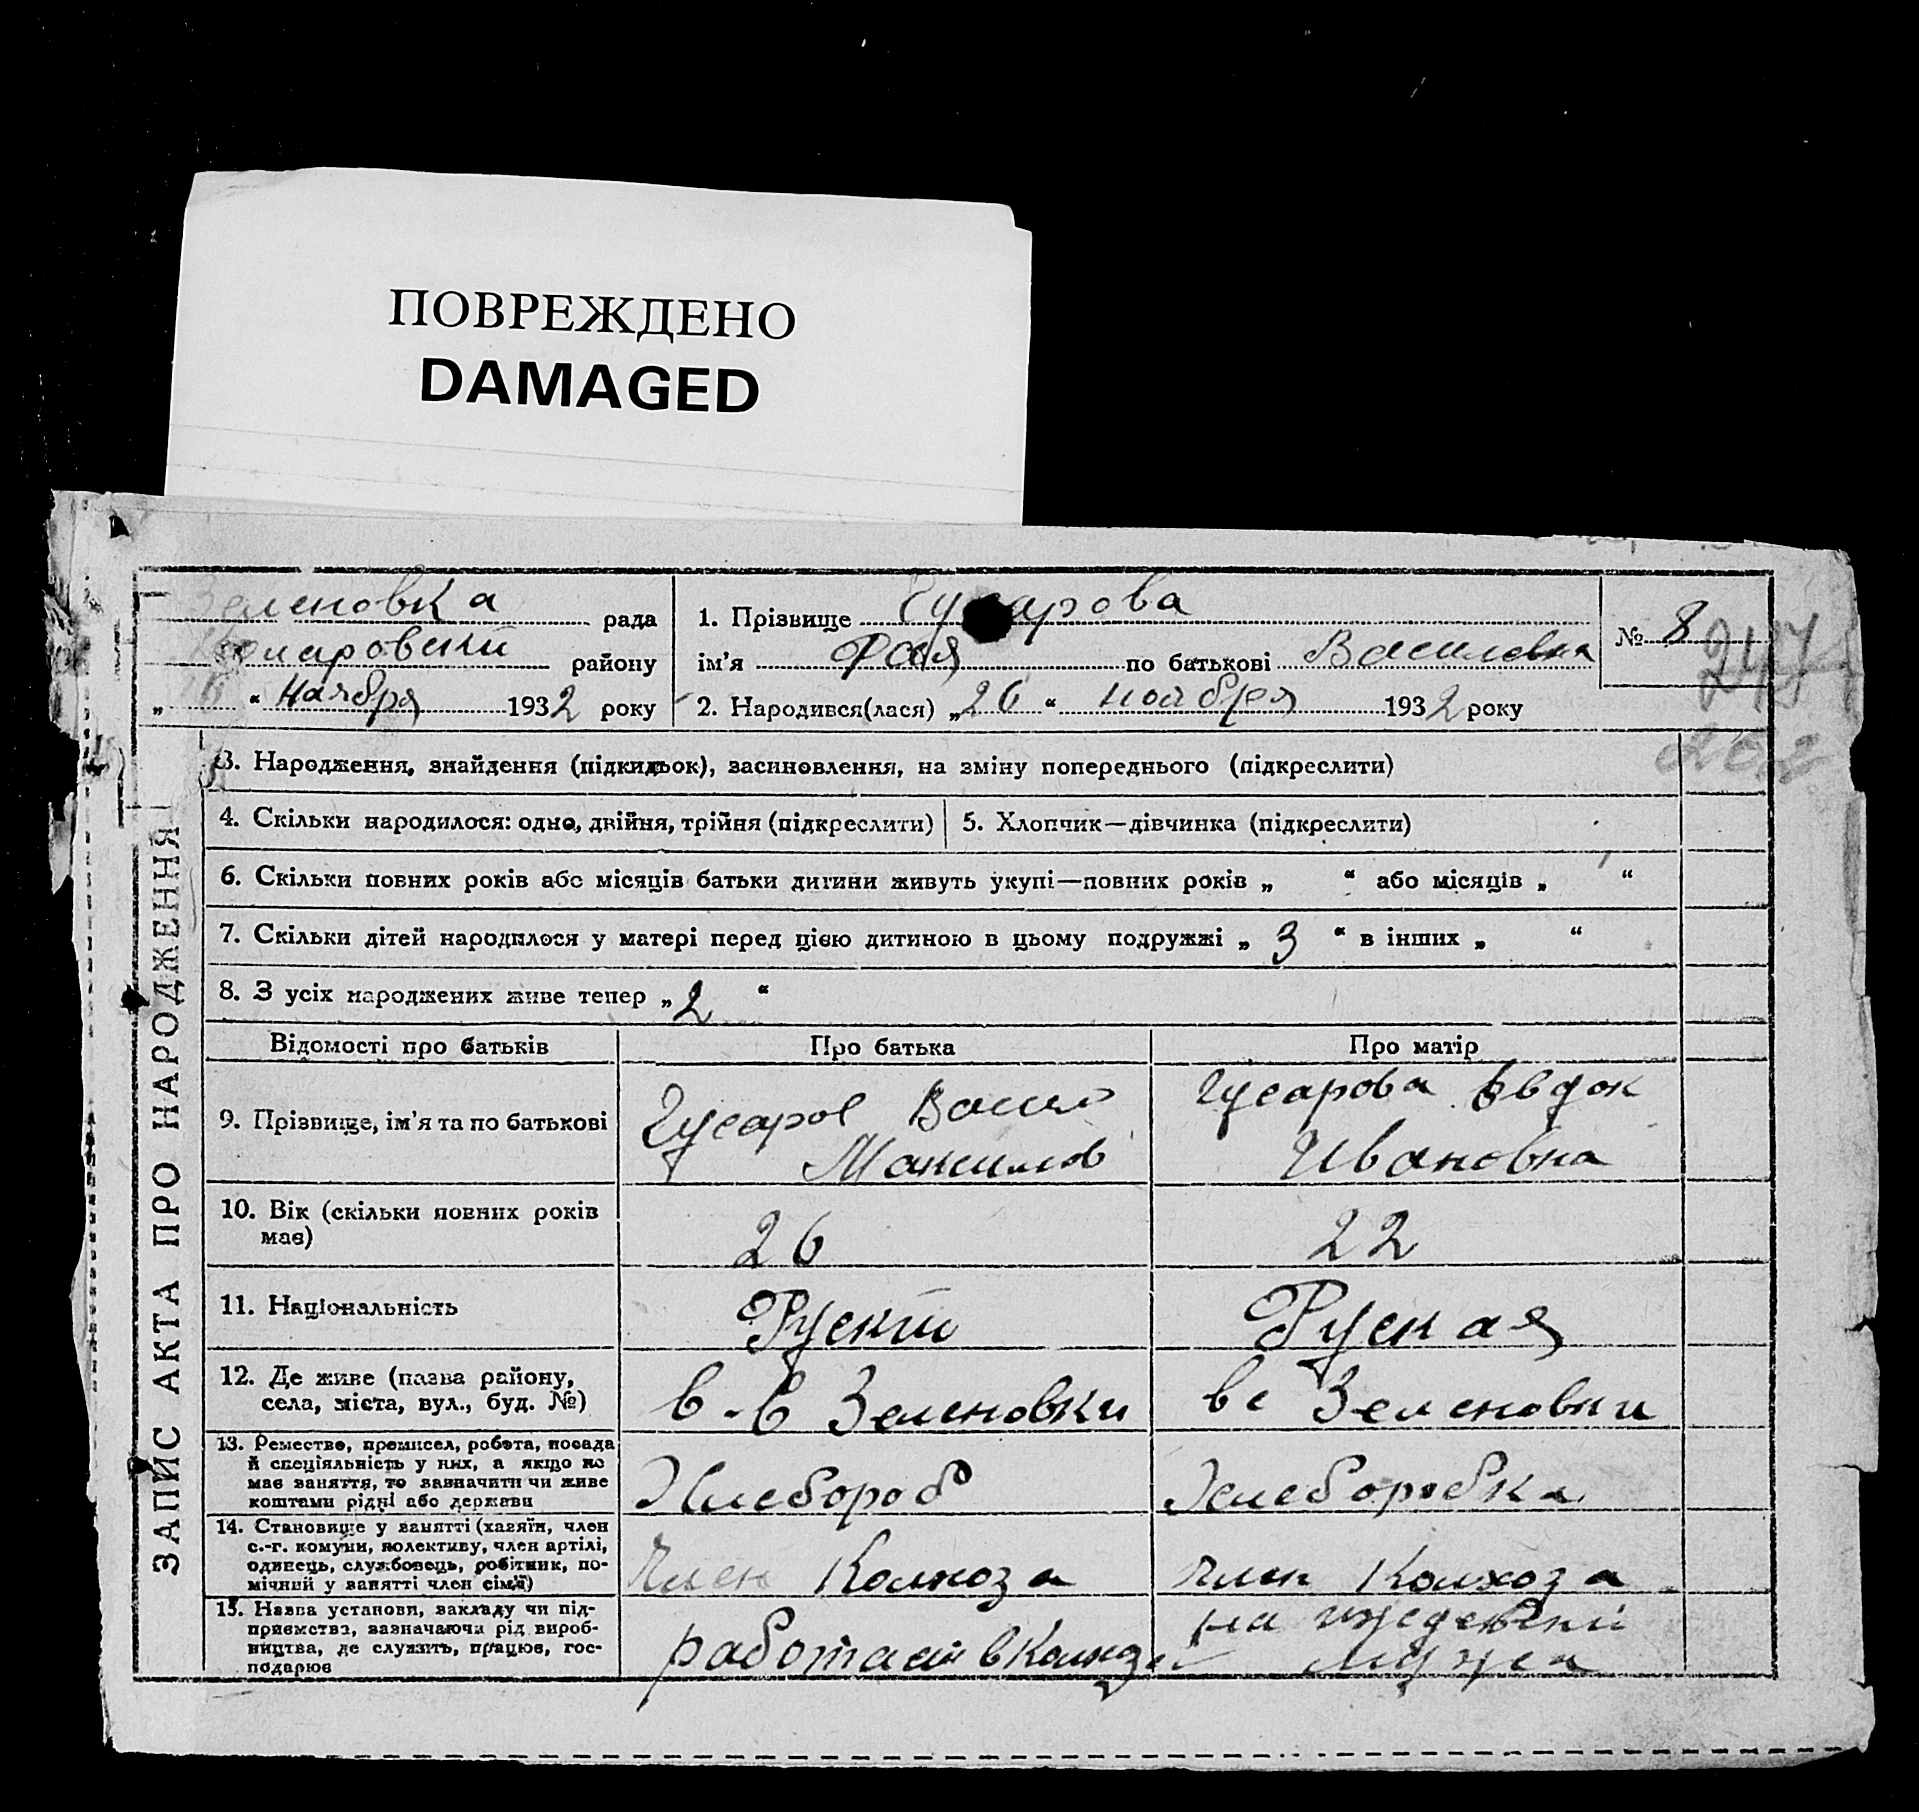 ПОВРЕЖДЕНО
DAMAGED
Зеленовка рада
району
„ “ Ноября 1932 року
1. Прізвище Гусарова
ім'я Фая по батькові Василевна
2. Народився(лася) „26“ ноября 1932 року
№ 8
3. Народження, знайдення (підкидьок), засиновлення, на зміну попереднього (підкреслити)
4. Скільки народилося: одно, двійня, трійня (підкреслити) 5. Хлопчик—дівчинка (підкреслити)
6. Скільки повних років або місяців батьки дитини живуть укупі—повних років „ “ або місяців „ “
7. Скільки дітей народилося у матері перед цією дитиною в цьому подружжі „ 3 “ в інших „ “
8. З усіх народжених живе тепер „ 2 “
Відомості про батьків Про батька Про матір
9. Прізвище, ім'я та по батькові
Гусаров Васил
Максимов
Гусарова Евдок
Ивановна
10. Вік (скільки повних років
має)
26 22
11. Національність Руский Руская
12. Де живе (назва району,
села, міста, вул., буд. №)
в. с Зеленовки вс Зеленовки
13. Ремество, промисел, робота, посада
й спеціяльність у них, а якщо не
має заняття, то зазначити чи живе
коштами рідні або держави
Хлебороб Хлеборобка
14. Становище у занятті (хазяїн, член
с.-г. комуни, колективу, член артілі,
одинець, службовець, робітник, по-
мічний у занятті член сім'ї)
Член Колхоза Член Колхоза
15. Назва установи, закладу чи під-
приємства, зазначаючи рід вироб-
ництва, де служить, працює, гос-
подарює
работает в
на иждевении
мужа
ЗАПИС АКТА ПРО НАРОДЖЕННЯ